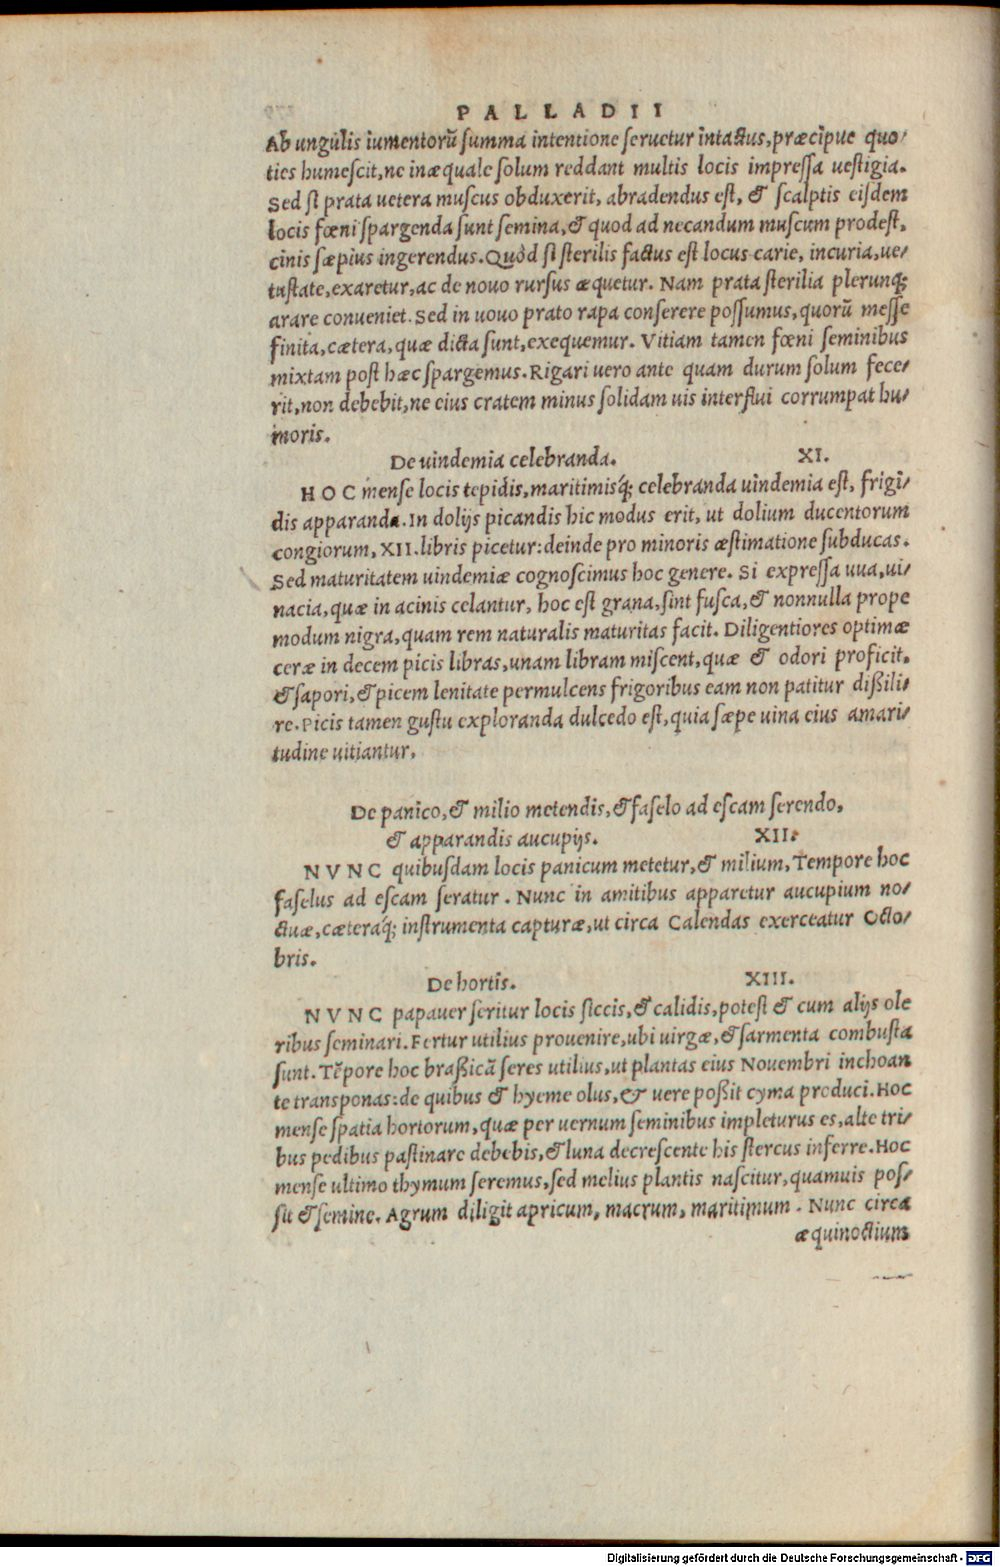 PALLADII
Ab ungulis iumentorũ summa intentione seruetur intactus, præcipue quo/
ties humescit, ne inæquale solum reddant multis locis impressa uestigia.
Sed si prata uetera muscus obduxerit, abradendus est, & scalptis eisdem
locis fœni spargenda sunt semina, & quod ad necandum muscum prodest,
cinis sæpius ingerendus. Quòd si sterilis factus est locus carie, incuria, ue/
tustate, exaretur, ac de nouo rursus æquetur. Nam prata sterilia plerunq;
arare conueniet. Sed in uouo prato rapa conserere possumus, quorũ messe
finita, cætera, quæ dicta sunt, exequemur. Vitiam tamen fœni seminibus
mixtam post hæc spargemus. Rigari uero ante quam durum solum fece/
rit, non debebit, ne eius cratem minus solidam uis interflui corrumpat hu/
moris.
De uindemia celebranda. XI.
HOC mense locis tepidis, maritimisq́; celebranda uindemia est, frigi/
dis apparanda. In dolijs picandis hic modus erit, ut dolium ducentorum
congiorum, XII. libris picetur: deinde pro minoris æstimatione subducas.
Sed maturitatem uindemiæ cognoscimus hoc genere. Si expressa uua, ui/
nacia, quæ in acinis celantur, hoc est grana, sint fusca, & nonnulla prope
modum nigra, quam rem naturalis maturitas facit. Diligentiores optimæ
ceræ in decem picis libras, unam libram miscent, quæ & odori proficit,
& sapori, & picem lenitate permulcens frigoribus eam non patitur dißili/
re. Picis tamen gustu exploranda dulcedo est, quia sæpe uina eius amari/
tudine uitiantur.
De panico, & milio metendis, & faselo ad escam serendo,
& apparandis aucupijs. XII.
NVNC quibusdam locis panicum metetur, & milium, Tempore hoc
faselus ad escam seratur. Nunc in amitibus apparetur aucupium no/
ctuæ, cæteraq́; instrumenta capturæ, ut circa Calendas exerceatur Octo/
bris.
De hortis. XIII.
NVNC papauer seritur locis siccis, & calidis, potest & cum alijs ole
ribus seminari. Fertur utilius prouenire, ubi uirgæ, & sarmenta combusta
sunt. Tẽpore hoc braßicã seres utilius, ut plantas eius Nouembri inchoan
te transponas: de quibus & hyeme olus, & uere poßit cyma produci. Hoc
mense spatia hortorum, quæ per uernum seminibus impleturus es, alte tri/
bus pedibus pastinare debebis, & luna decrescente his stercus inferre. Hoc
mense ultimo thymum seremus, sed melius plantis nascitur, quamuis pos/
sit & semine. Agrum diligit apricum, macrum, maritimum. Nunc circa
æquinoctium
Digitalisierung gefördert durch die Deutsche Forschungsgemeinschaft - DFG